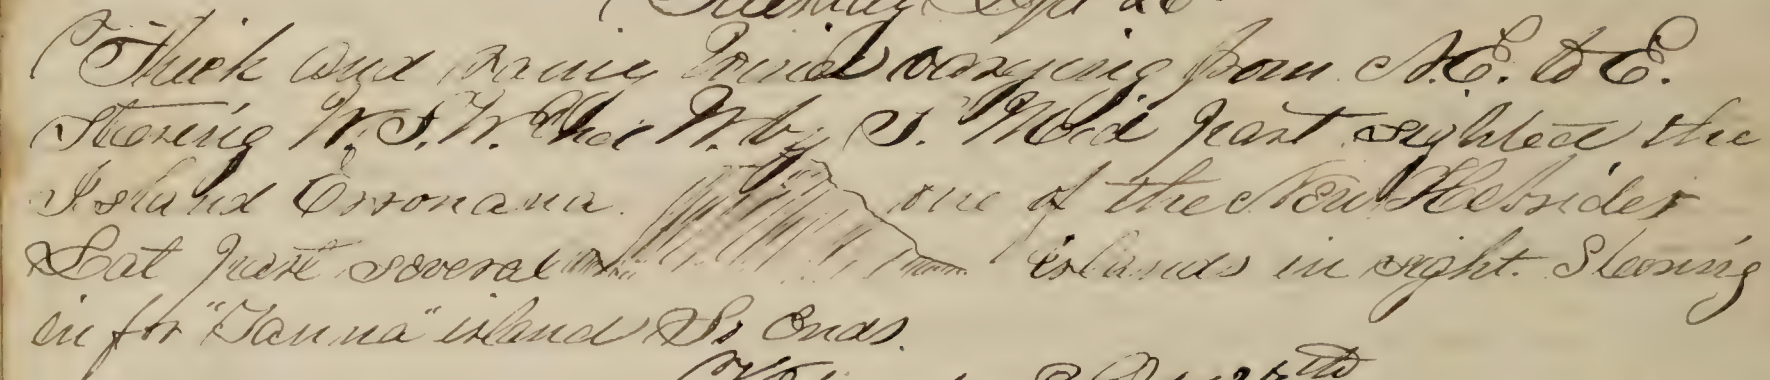 Thick and rainy Wind varying from N.E. to E.
Steering W.S.W. then W. by S. Mid part sighted the
Island Erronana. one of the New Hebrides
Lat part several islands in sight. Steering
in for "Tanna" island So Ends.